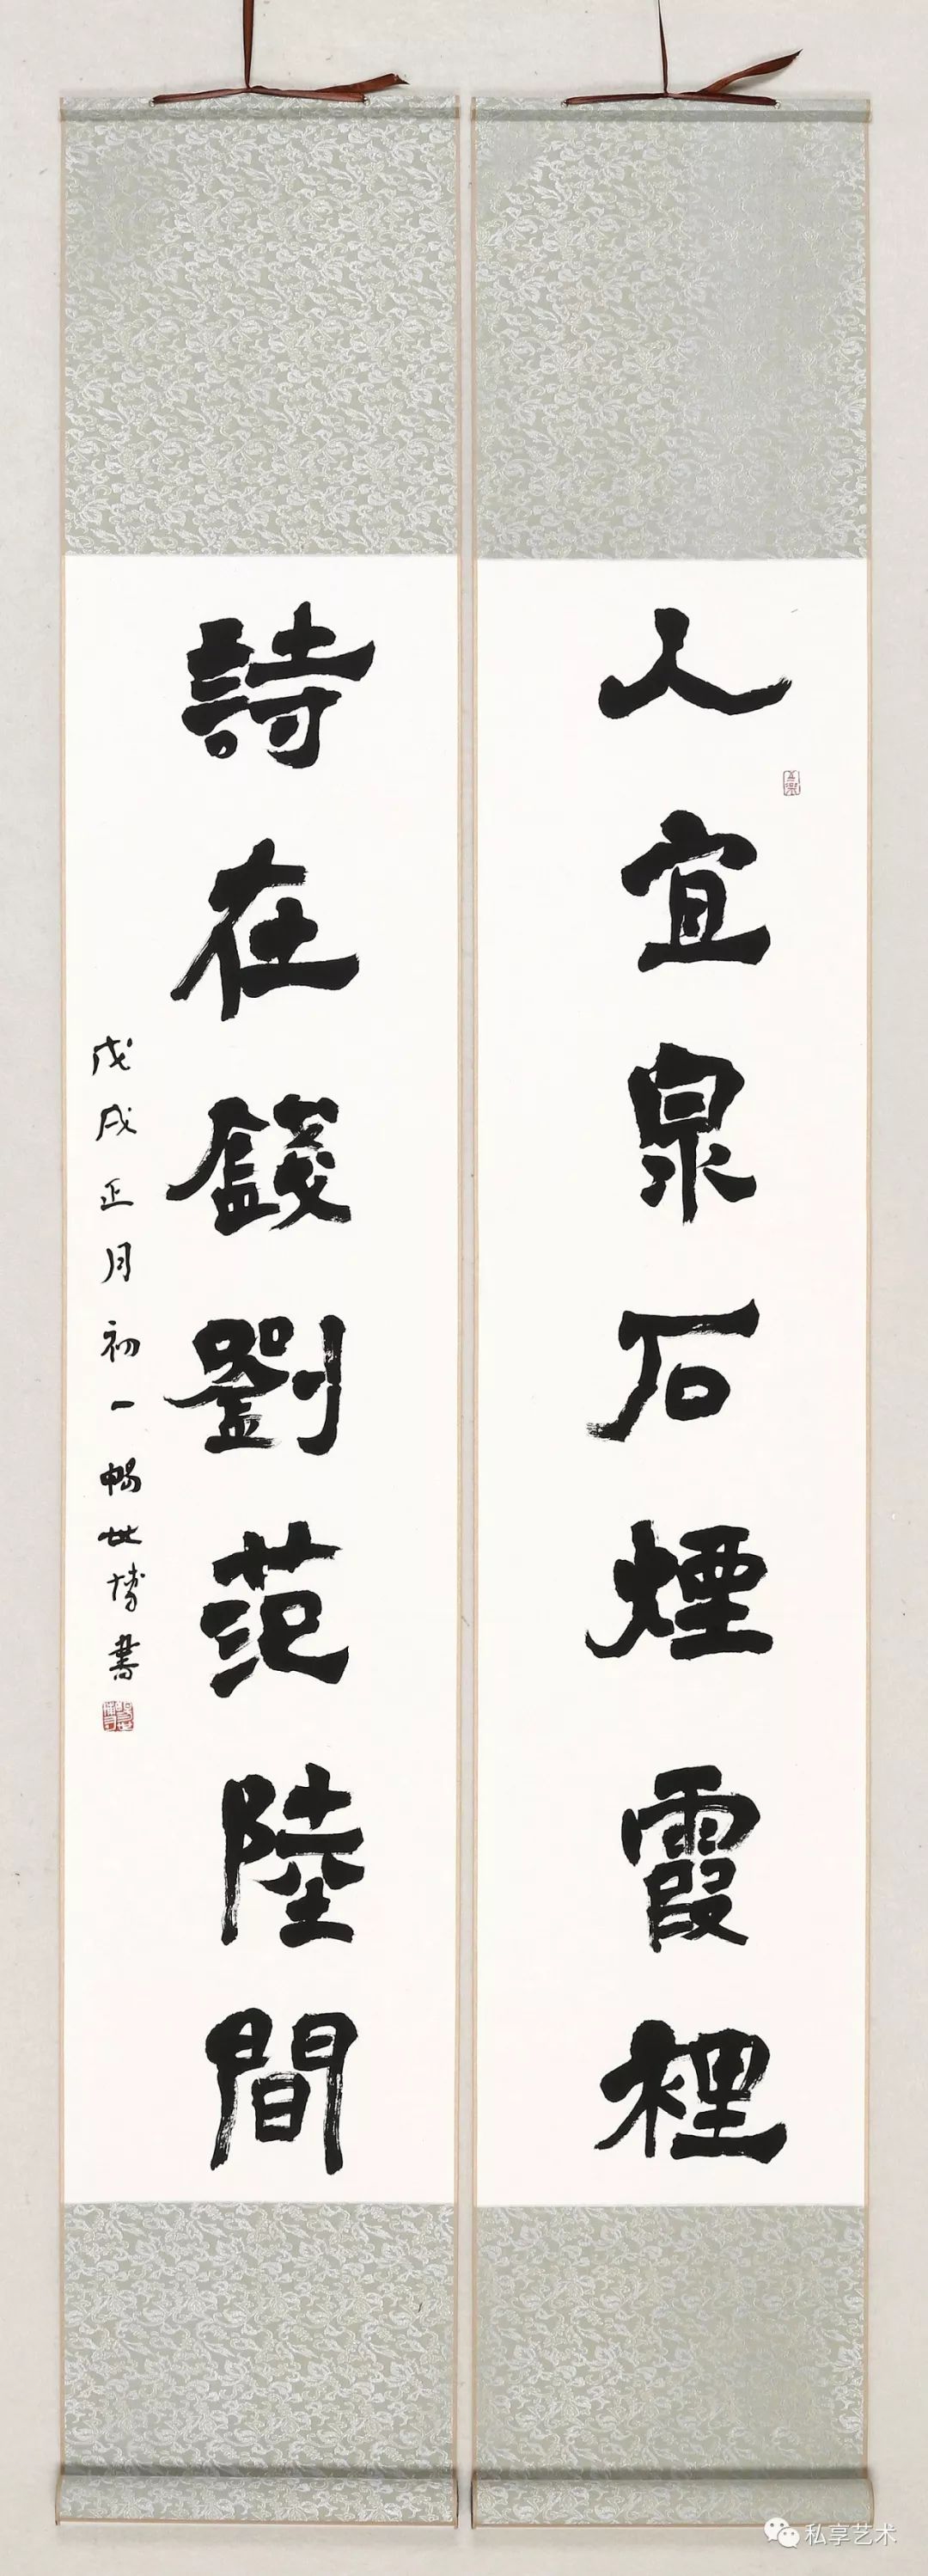 人宜泉石煙霞裡
詩在錢劉范陸間
戊戌正月初一暢世博書
私享艺术